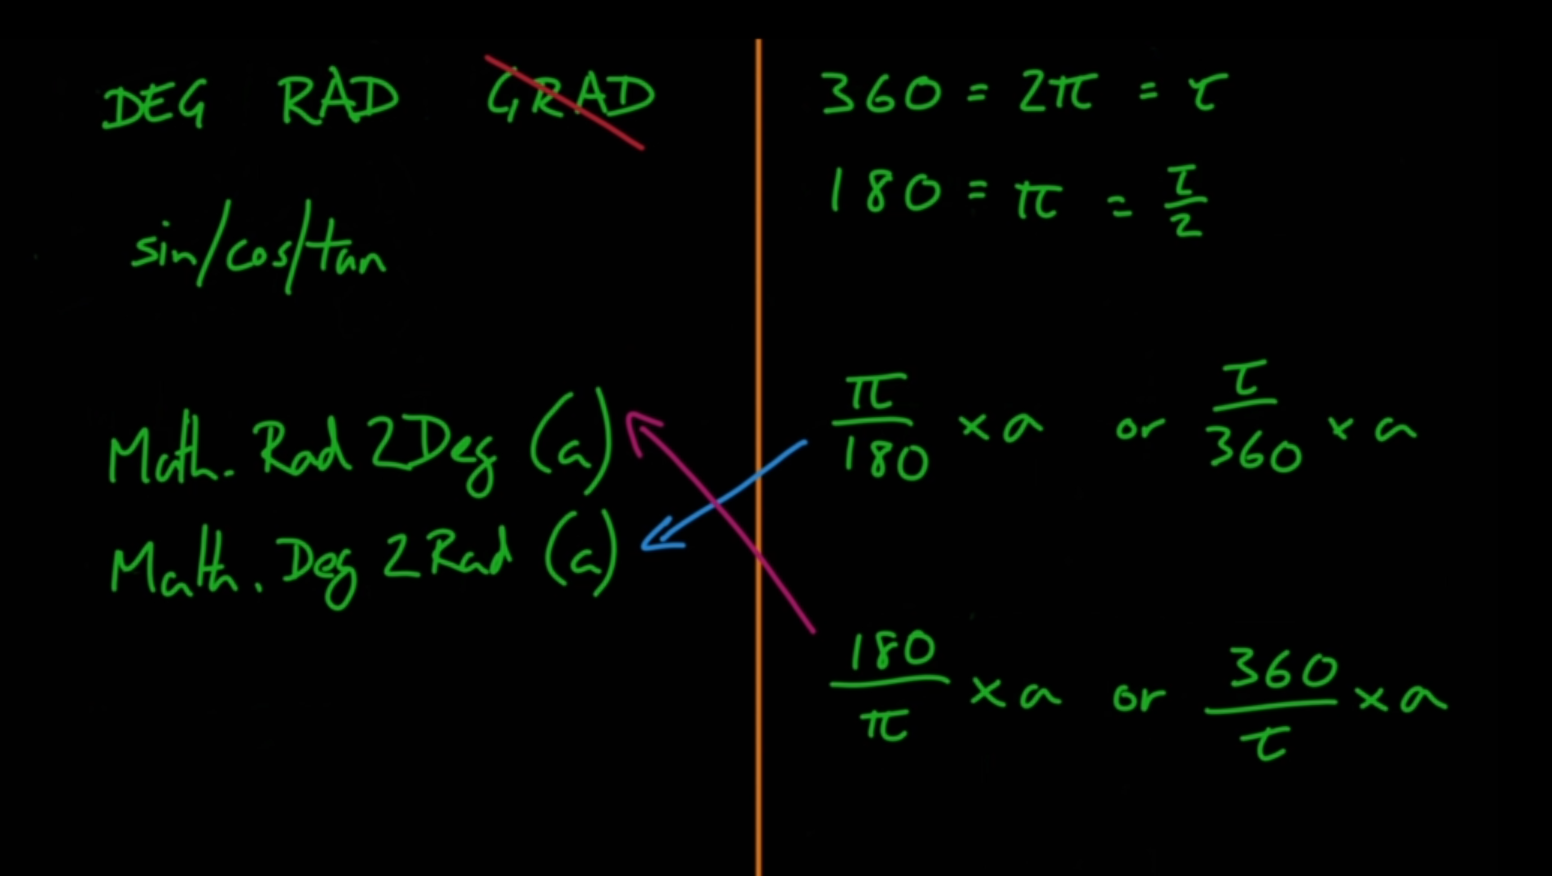 DEG RAD GRAD
sin/cos/tan
Math. Rad 2Deg (a)
Math. Deg 2 Rad (a)
360 = 2π = τ
180 = π = τ/2
π/180 × a or τ/360 × a
180/π × a or 360/τ × a